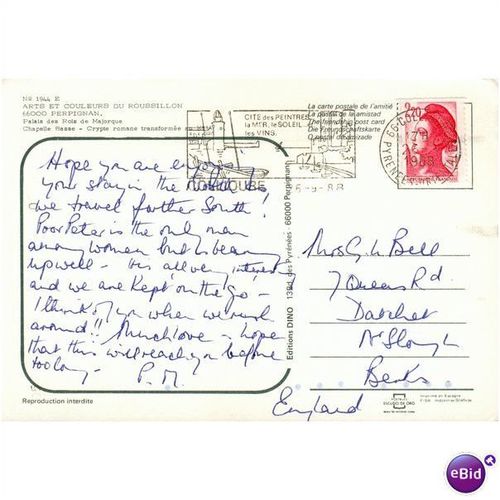 Nº 1944 E
ARTS ET COULEURS DU ROUSSILLON
66000 PERPIGNAN,
Palais des Rois de Majorque
Chapelle Basse - Crypte romane transformée
CITE des PEINTRES
la MER, le SOLEIL
les VINS.
COLLIOURE
5-9-88
La carte postale de l'amitié
La postal de la amistad
The friendship post card
Die Freundschaftskarte
O postal de amizade
66 COLLIOURE
PYRENEES
1988
Hope you are enjoying
your stay in the
we travel further South!
Poor Peter is the only man
among women but is bearing
up well - its all very interesting
and we are kept on the go -
I think of you when we rush
around!! Much love - hope
that this will reach you before
too long -
P. M.
Mrs G. W. Bell
7 Queens Rd
Datchet
Nr Slough
Berks
England
Editions DINO 139d. des Pyrénées - 66000 Perpignan
Reproduction interdite
ESCUDO DE ORO
Imprimé en Espagne
eBid